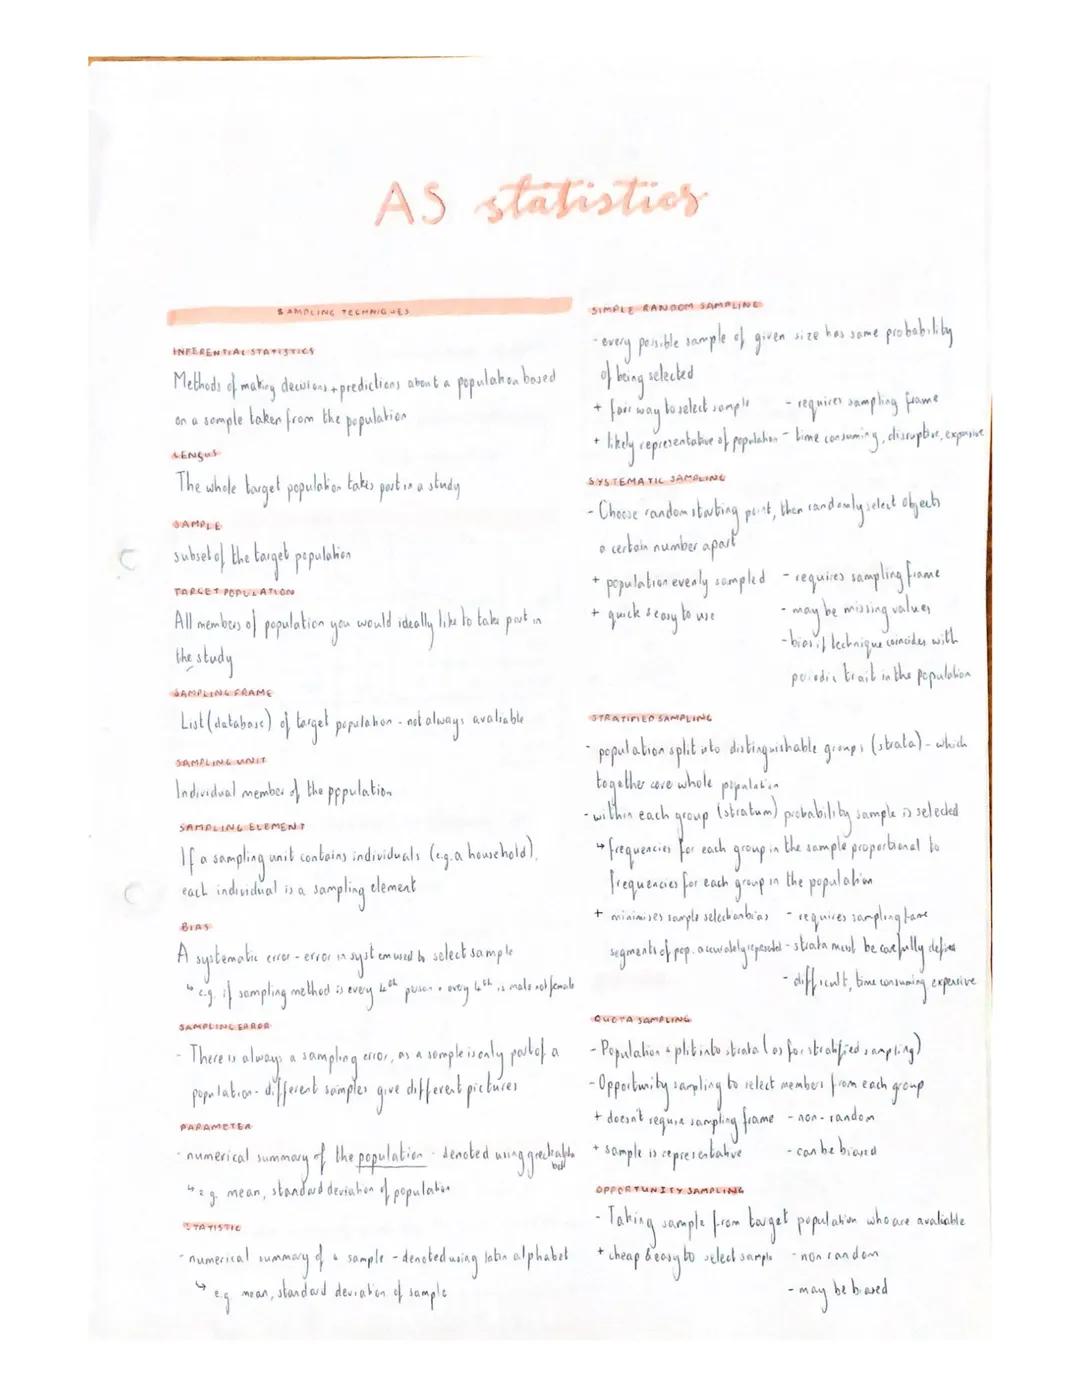 AS statistics
SAMPLING TECHNIQUES
INFERENTIAL STATISTICS
Methods of making decisions + predictions about a population based
on a sample taken from the population
CENSUS
The whole target population takes part in a study
SAMPLE
subset of the target population
TARGET POPULATION
All members of population you would ideally like to take part in
the study
SAMPLING FRAME
List (database) of target population - not always avaliable
SAMPLING UNIT
Individual member of the population
SAMPLING ELEMENT
If a sampling unit contains individuals (e.g. a household),
each individual is a sampling element
BIAS
A systematic error - error in system used to select sample
↳ e.g. if sampling method is every 4th person + every 4th is male not female
SAMPLING ERROR
- There is always a sampling error, as a sample is only part of a
population - different samples give different pictures
PARAMETER
- numerical summary of the population - denoted using greek alphabet
↳ e.g. mean, standard deviation of population
STATISTIC
- numerical summary of a sample - denoted using latin alphabet
↳ e.g. mean, standard deviation of sample
SIMPLE RANDOM SAMPLING
- every possible sample of given size has same probability
of being selected
+ fair way to select sample - requires sampling frame
+ likely representative of population - time consuming, disruptive, expensive
SYSTEMATIC SAMPLING
- Choose random starting point, then randomly select objects
a certain number apart
+ population evenly sampled - requires sampling frame
+ quick & easy to use - may be missing values
- bias if technique coincides with
periodic trait in the population
STRATIFIED SAMPLING
- population split into distinguishable groups (strata) - which
together cove whole population
- within each group (stratum) probability sample is selected
↳ frequencies for each group in the sample proportional to
frequencies for each group in the population
+ minimises sample selection bias - requires sampling frame
segments of pop. accurately represented - strata must be carefully defined
- difficult, time consuming expensive
QUOTA SAMPLING
- Population split into strata (as for stratified sampling)
- Opportunity sampling to select members from each group
+ doesn't require sampling frame - non-random
+ sample is representative - can be biased
OPPORTUNITY SAMPLING
- Taking sample from target population who are avaliable
+ cheap & easy to select sample - non random
- may be biased